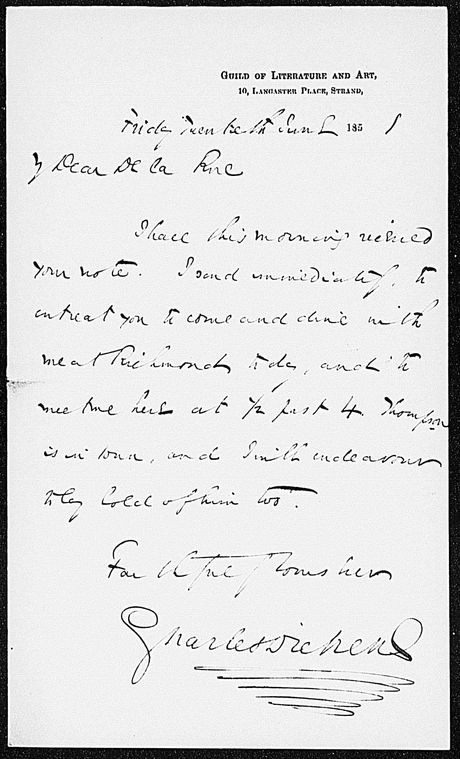 GUILD OF LITERATURE AND ART,
10, LANCASTER PLACE, STRAND,
Friday Twentieth June 1851
My Dear De la Rue
I have this morning received
your note. I send immediately, to
entreat you to come and dine with
me at Richmond today, and to
meet me here at ½ past 4. Thompson
is in town, and I will endeavour
to lay hold of him too.
Faithfully Yours ever
Charles Dickens